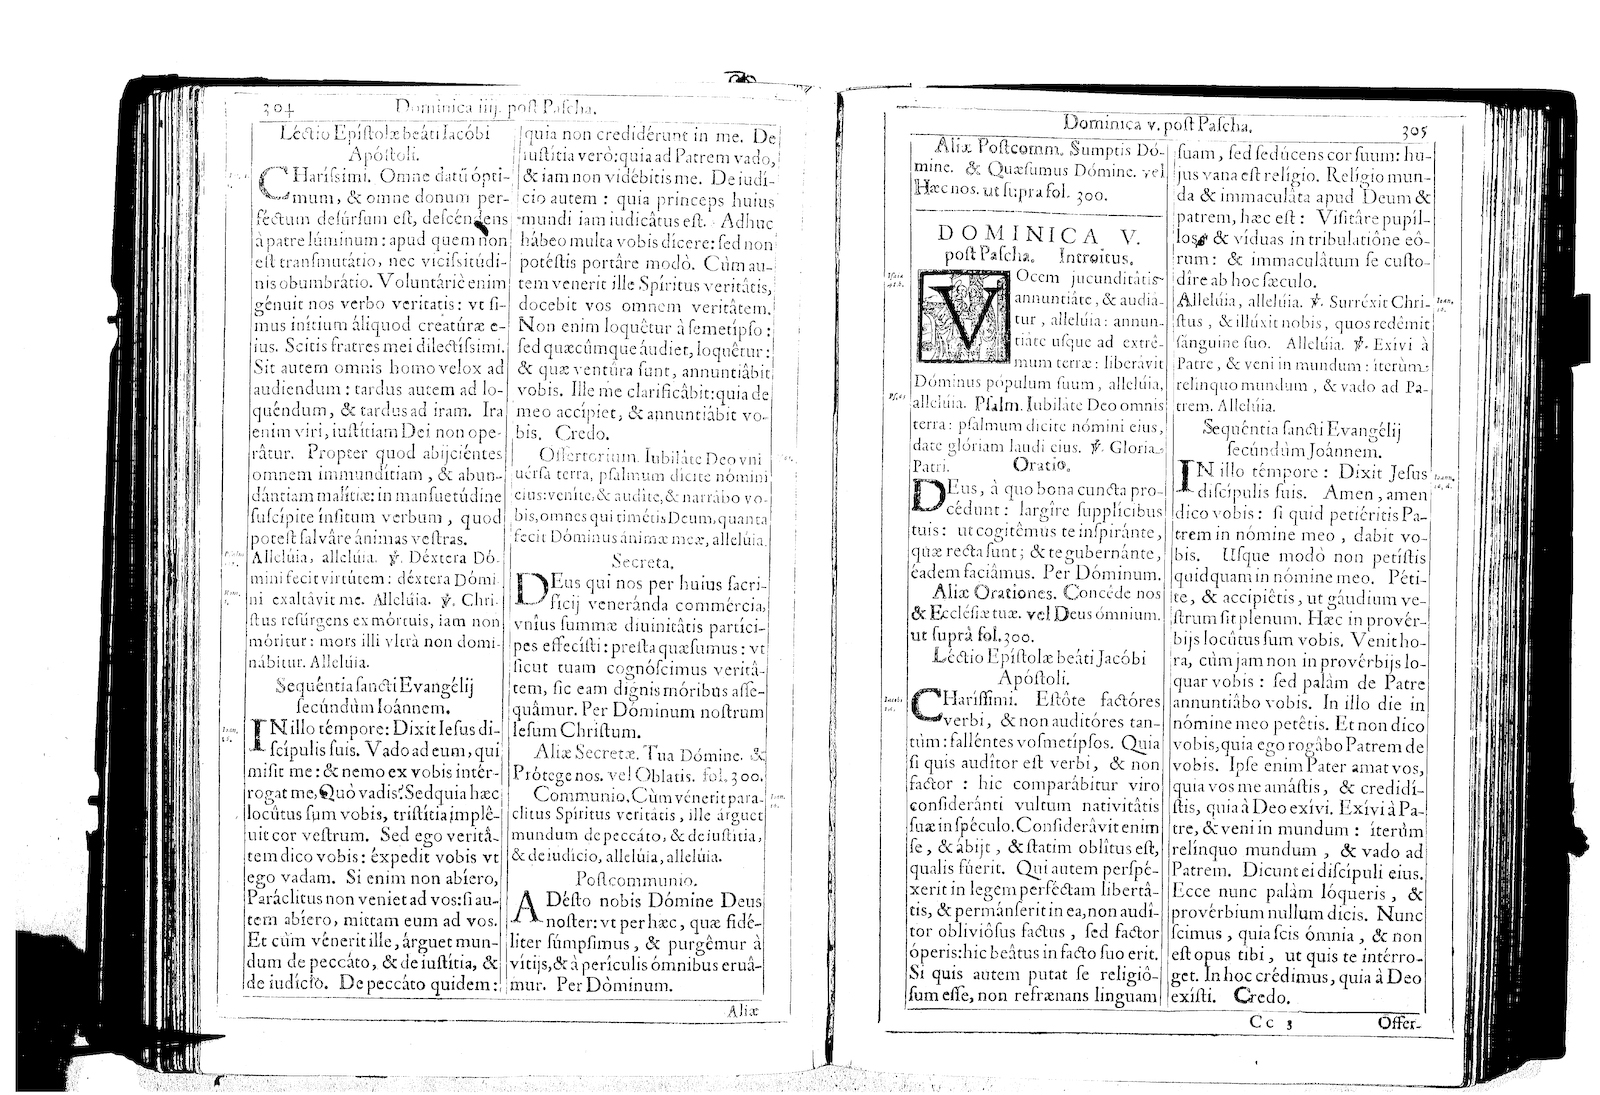 304
Dominica iiij. post Pascha.
Léctio Epístolæ beáti Iacóbi
Apóstoli.
CHaríssimi. Omne datũ ópti-
mum, & omne donum per-
féctum desúrsum est, descéndens
à patre lúminum: apud quem non
est transmutátio, nec vicissitúdi-
nis obumbrátio. Voluntáriè enim
génuit nos verbo veritatis: vt si-
mus inítium áliquod creatúræ e-
ius. Scitis fratres mei dilectíssimi.
Sit autem omnis homo velox ad
audiendum: tardus autem ad lo-
quéndum, & tardus ad iram. Ira
enim viri, iustítiam Dei non ope-
râtur. Propter quod abijciéntes
omnem immundítiam, & abun-
dántiam malítiæ: in mansuetúdine
suscípite ínsitum verbum, quod
potest salváre ánimas vestras.
Allelúia, allelúia. ℣. Déxtera Dó-
mini fecit virtútem: déxtera Dómi-
ni exaltávit me. Allelúia. ℣. Chri-
stus resúrgens ex mórtuis, iam non
móritur: mors illi vltrà non domi-
nábitur. Allelúia.
Sequéntia sancti Evangélij
secúndùm Ioánnem.
IN illo témpore: Dixit Iesus di-
scípulis suis. Vado ad eum, qui
misit me: & nemo ex vobis intér-
rogat me, Quò vadis? Sed quia hæc
locûtus sum vobis, tristítia implê-
uit cor vestrum. Sed ego veritâ-
tem dico vobis: éxpedit vobis vt
ego vadam. Si enim non abíero,
Paráclitus non veniet ad vos: si au-
tem abíero, mittam eum ad vos.
Et cùm vénerit ille, árguet mun-
dum de peccáto, & de iustítia, &
de iudício. De peccáto quidem:
quia non credidérunt in me. De
iustítia verò: quia ad Patrem vado,
& iam non vidébitis me. De iudí-
cio autem: quia princeps huius
mundi iam iudicâtus est. Adhuc
hábeo multa vobis dícere: sed non
potéstis portâre modò. Cùm au-
tem venerit ille Spíritus veritâtis,
docebit vos omnem veritâtem.
Non enim loquêtur à semetípso:
sed quæcûmque áudiet, loquêtur:
& quæ ventúra sunt, annuntiâbit
vobis. Ille me clarificâbit: quia de
meo accípiet, & annuntiâbit vo-
bis. Credo.
Offertorium. Iubiláte Deo vni
uérsa terra, psalmum dícite nómini
eius: veníte, & audíte, & narrábo vo-
bis, omnes qui timétis Deum, quanta
fecit Dóminus ánimæ meæ, allelúia.
Secreta.
DEus qui nos per huius sacri-
fícij veneránda commércia,
vníus summæ diuinitâtis partíci-
pes effecísti: præsta quæsumus: vt
sicut tuam cognóscimus veritâ-
tem, sic eam dignis móribus asse-
quâmur. Per Dóminum nostrum
Iesum Christum.
Aliæ Secretæ. Tua Dómine. &
Prótege nos. vel Oblatis. fol. 300.
Communio. Cùm vénerit para-
clitus Spíritus veritátis, ille árguet
mundum de peccáto, & de iustítia,
& de iudício, allelúia, allelúia.
Postcommunio.
ADésto nobis Dómine Deus
noster: vt per hæc, quæ fidé-
liter súmpsimus, & purgêmur à
vítijs, & à perículis ómnibus eruâ-
mur. Per Dòminum.
Aliæ
Dominica v. post Pascha.
305
Aliæ Postcomm. Sumptis Dó-
mine. & Quæsumus Dómine. vel
Hæc nos. ut supra fol. 300.
DOMINICA V.
post Pascha. Introitus.
VOcem jucunditátis
annuntiáte, & audia
tur, allelúia: annun-
tiáte usque ad extré-
mum terræ: liberávit
Dóminus pópulum suum, allelúia,
allelúia. Psalm. Iubiláte Deo omnis
terra: psalmum dícite nómini eius,
date glóriam laudi eius. ℣. Gloria
Patri. Oratio.
DEus, à quo bona cuncta pro-
cédunt: largíre supplícibus
tuis: ut cogitêmus te inspiránte,
quæ recta sunt; & te gubernánte,
éadem faciâmus. Per Dóminum.
Aliæ Orationes. Concéde nos
& Ecclésiæ tuæ. vel Deus ómnium.
ut suprà fol. 300.
Léctio Epístolæ beáti Jacóbi
Apóstoli.
CHaríssimi. Estôte factóres
verbi, & non auditóres tan-
tùm: falléntes vosmetípsos. Quia
si quis audítor est verbi, & non
factor: hic comparábitur viro
consideránti vultum nativitâtis
suæ in spéculo. Considerâvit enim
se, & ábijt, & statim oblîtus est,
qualis fúerit. Qui autem perspé-
xerit in legem perféctam libertâ-
tis, & permánserit in ea, non audí-
tor obliviôsus factus, sed factor
óperis: hic beâtus in facto suo erit.
Si quis autem putat se religiô-
sum esse, non refrænans linguam
suam, sed sedúcens cor suum: hu-
jus vana est religio. Relígio mun-
da & immaculâta apud Deum &
patrem, hæc est: Visitâre pupíl-
los, & víduas in tribulatiône eô-
rum: & immaculâtum se custo-
dîre ab hoc sæculo.
Allelúia, allelúia. ℣. Surréxit Chri-
stus, & illúxit nobis, quos redémit
sánguine suo. Allelúia. ℣. Exivi à
Patre, & veni in mundum: iterùm
relinquo mundum, & vado ad Pa-
trem. Allelúia.
Sequéntia sancti Evangélij
secúndùm Joánnem.
IN illo témpore: Dixit Jesus
discípulis suis. Amen, amen
dico vobis: si quid petiéritis Pa-
trem in nómine meo, dabit vo-
bis. Usque modò non petístis
quidquam in nómine meo. Péti-
te, & accipiêtis, ut gáudium ve-
strum sit plenum. Hæc in provér-
bijs locûtus sum vobis. Venit ho-
ra, cùm jam non in provérbijs lo-
quar vobis: sed palàm de Patre
annuntiâbo vobis. In illo die in
nómine meo petêtis. Et non dico
vobis, quia ego rogâbo Patrem de
vobis. Ipse enim Pater amat vos,
quia vos me amâstis, & credidí-
stis, quia à Deo exívi. Exívi à Pa-
tre, & veni in mundum: íterùm
relínquo mundum, & vado ad
Patrem. Dicunt ei discípuli eius.
Ecce nunc palàm lóqueris, &
provérbium nullum dicis. Nunc
scimus, quia scis ómnia, & non
est opus tibi, ut quis te intérro-
get. In hoc crédimus, quia à Deo
exísti. Credo.
Cc 3
Offer-